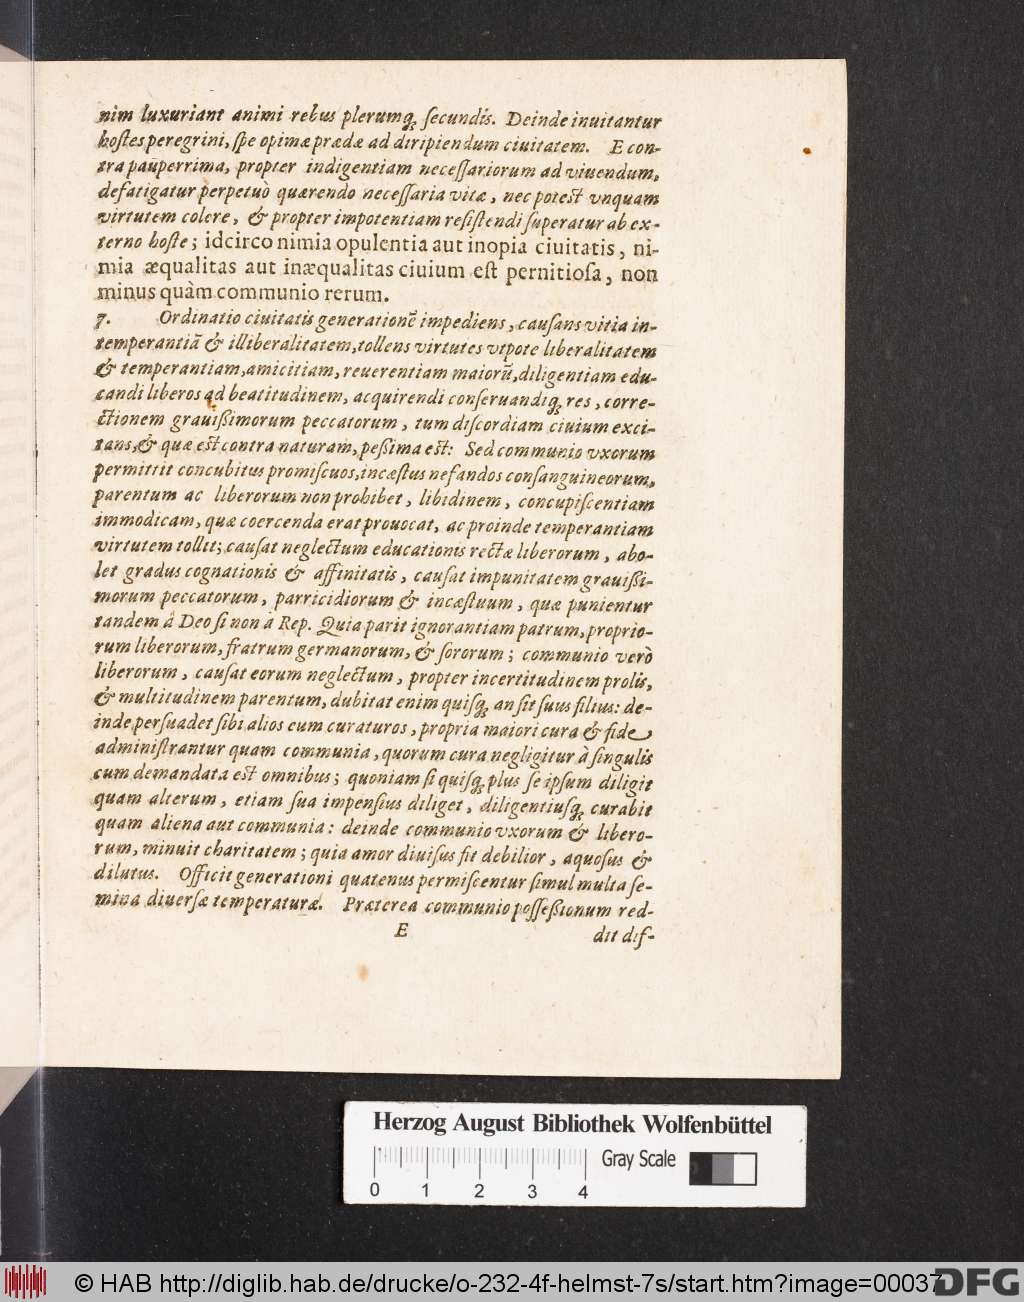 nim luxuriant animi rebus plerumq́; ſecundis. Deinde inuitantur
hoſtes peregrini, ſpe opimæ prædæ ad diripiendum ciuitatem. E con-
tra pauperrima, propter indigentiam neceſſariorum ad viuendum,
defatigatur perpetuò quærendo neceſſaria vitæ, nec poteſt vnquam
virtutem colere, & propter impotentiam reſiſtendi ſuperatur ab ex-
terno hoſte; idcirco nimia opulentia aut inopia ciuitatis, ni-
mia æqualitas aut inæqualitas ciuium eſt pernitioſa, non
minus quàm communio rerum.
7. Ordinatio ciuitatis generationē impediens, cauſans vitia in-
temperantiā & illiberalitatem, tollens virtutes vtpote liberalitatem
& temperantiam, amicitiam, reuerentiam maiorū, diligentiam edu-
candi liberos ad beatitudinem, acquirendi conſeruandiq́; res, corre-
ctionem grauißimorum peccatorum, tum diſcordiam ciuium exci-
tans, & quæ eſt contra naturam, peßima eſt: Sed communio vxorum
permittit concubitus promiſcuos, incæſtus nefandos conſanguineorum,
parentum ac liberorum non prohibet, libidinem, concupiſcentiam
immodicam, quæ coercenda erat prouocat, ac proinde temperantiam
virtutem tollit; cauſat neglectum educationis rectæ liberorum, abo-
let gradus cognationis & affinitatis, cauſat impunitatem grauißi-
morum peccatorum, parricidiorum & incæſtuum, quæ punientur
tandem à Deo ſi non à Rep. Quia parit ignorantiam patrum, proprio-
rum liberorum, fratrum germanorum, & ſororum; communio verò
liberorum, cauſat eorum neglectum, propter incertitudinem prolis,
& multitudinem parentum, dubitat enim quiſq́; an ſit ſuus filius: de-
inde perſuadet ſibi alios eum curaturos, propria maiori cura & fide
adminiſtrantur quam communia, quorum cura negligitur à ſingulis
cum demandata eſt omnibus; quoniam ſi quiſq́; plus ſe ipſum diligit
quam alterum, etiam ſua impenſius diliget, diligentiuſq́; curabit
quam aliena aut communia: deinde communio vxorum & libero-
rum, minuit charitatem; quia amor diuiſus fit debilior, aquoſus &
dilutus. Officit generationi quatenus permiſcentur ſimul multa ſe-
mina diuerſæ temperaturæ. Præterea communio poſſeßionum red-
E dit dif-
Herzog August Bibliothek Wolfenbüttel
Gray Scale
0 1 2 3 4
© HAB http://diglib.hab.de/drucke/o-232-4f-helmst-7s/start.htm?image=00037
DFG